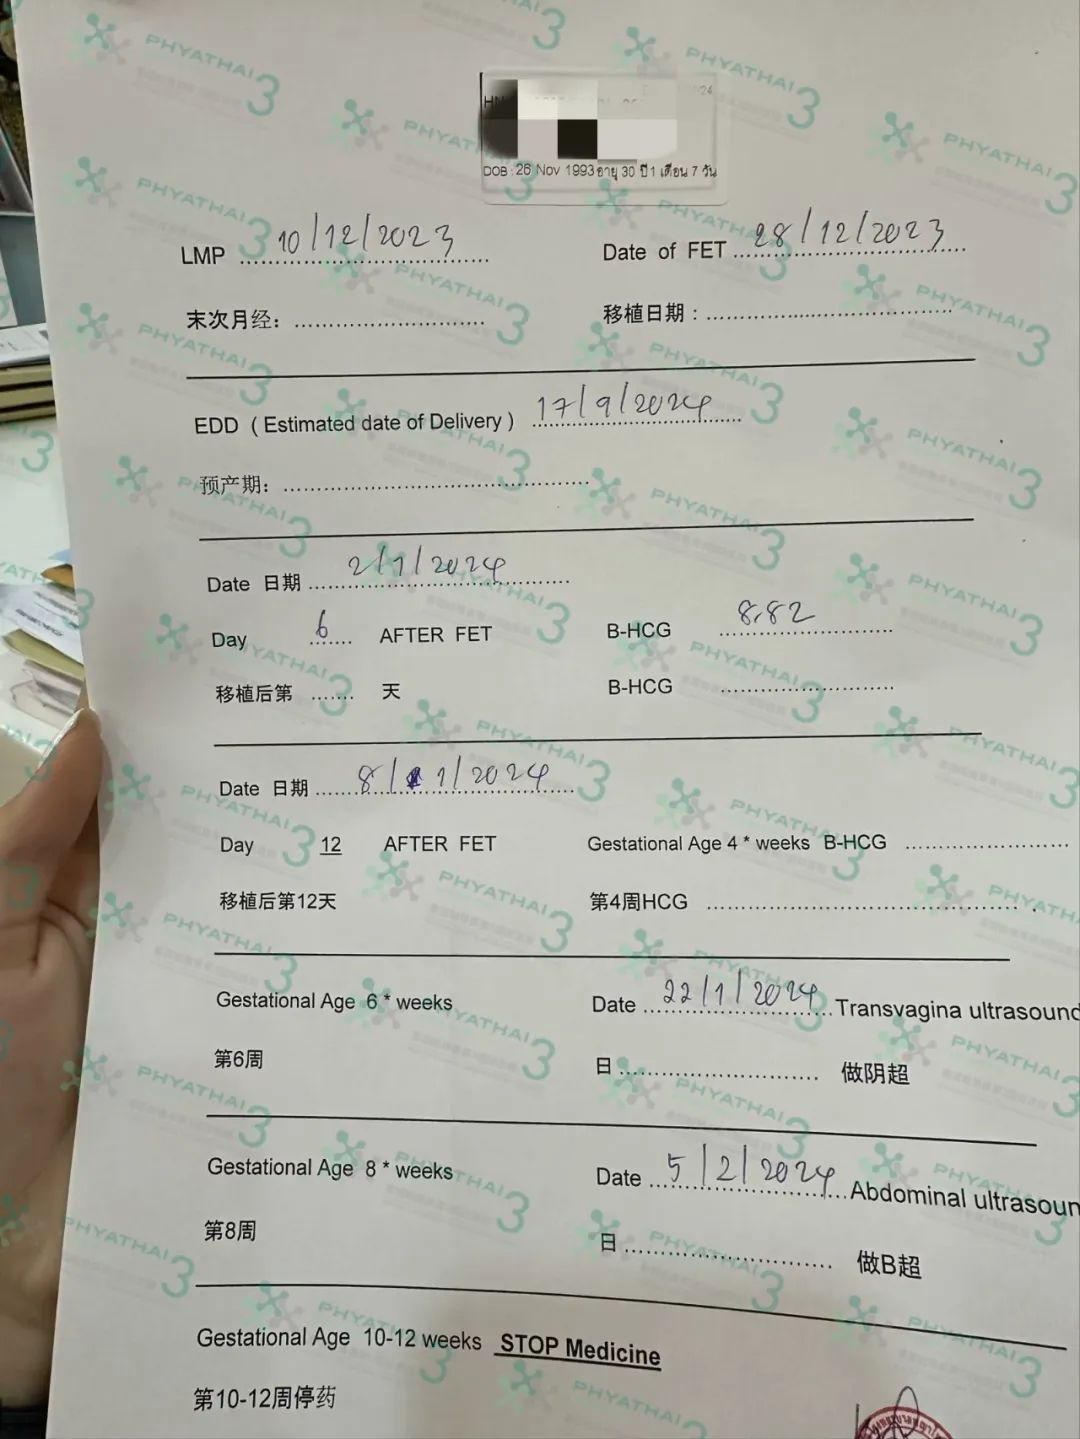 HN
DOB : 26 Nov 1993 อายุ 30 ปี 1 เดือน 7 วัน
LMP 10/12/2023 Date of FET 28/12/2023
末次月经： 移植日期：
EDD ( Estimated date of Delivery ) 17/9/2024
预产期：
Date 日期 2/1/2024
Day 6 AFTER FET B-HCG 8.82
移植后第 天 B-HCG
Date 日期 8/1/2024
Day 12 AFTER FET Gestational Age 4 * weeks B-HCG
移植后第12天 第4周HCG
Gestational Age 6 * weeks Date 22/1/2024 Transvagina ultrasound
第6周 日 做阴超
Gestational Age 8 * weeks Date 5/2/2024 Abdominal ultrasoun
第8周 日 做B超
Gestational Age 10-12 weeks STOP Medicine
第10-12周停药
PHYATHAI 3